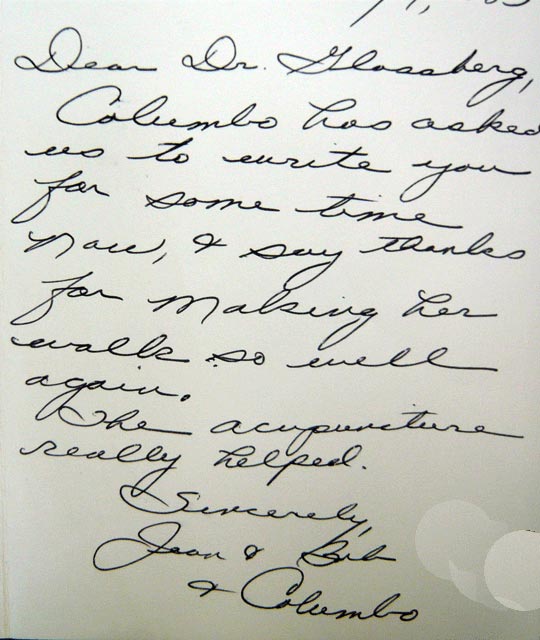 Dear Dr. Glassberg,
Columbo has asked
us to write you
for some time
now, & say thanks
for making her
walk so well
again.
The acupuncture
really helped.
Sincerely,
Jean & Bob
& Columbo